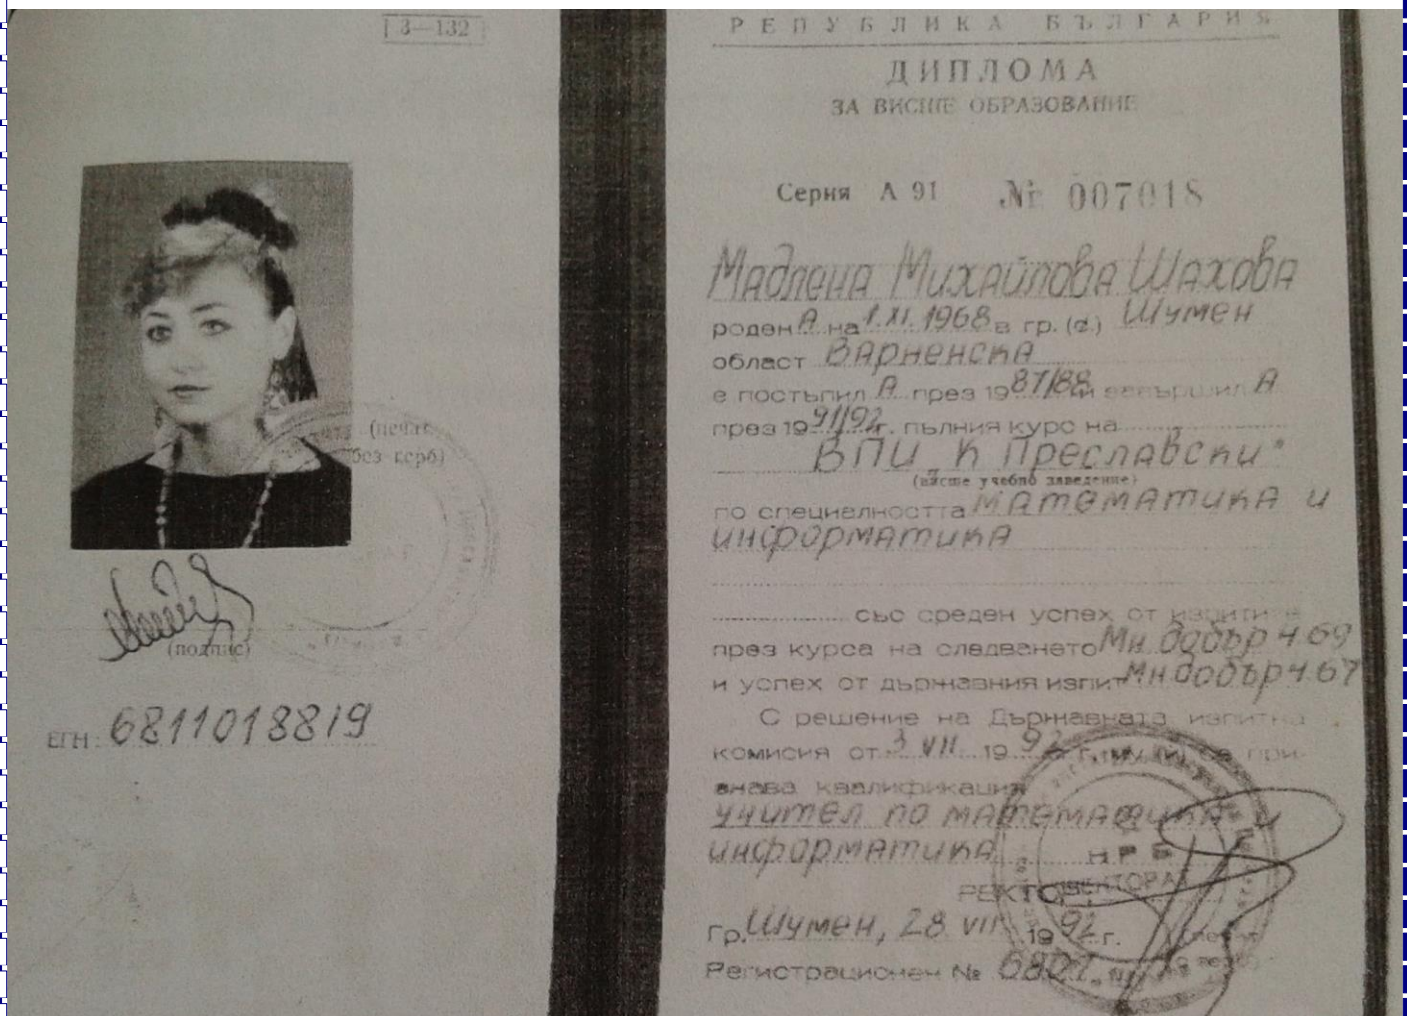 3—132
(печат
без герб)
(подпис)
ЕГН: 6811018819
РЕПУБЛИКА БЪЛГАРИЯ
ДИПЛОМА
ЗА ВИСШЕ ОБРАЗОВАНИЕ
Серия А 91 № 007018
Мадлена Михайлова Шахова
роденА на 1.XI.1968 в гр. (с.) Шумен
област Варненска
е постъпил А през 1987/88 и завършил А
през 1991/92 г. пълния курс на
ВПИ „К Преславски"
(висше учебно заведение)
по специалността математика и
информатика
със среден успех от изпити е
през курса на следването Мн. добър 4.69
и успех от държавния изпит Мн добър 4.67
С решение на Държавната изпитна
комисия от 3 VII 1992 г. му (и) се при-
знава квалификация
учител по математика и
информатика
НРБ
РЕКТОРАТ
РЕКТОР:
Гр. Шумен, 28 VII 1992 г.
Регистрационен №